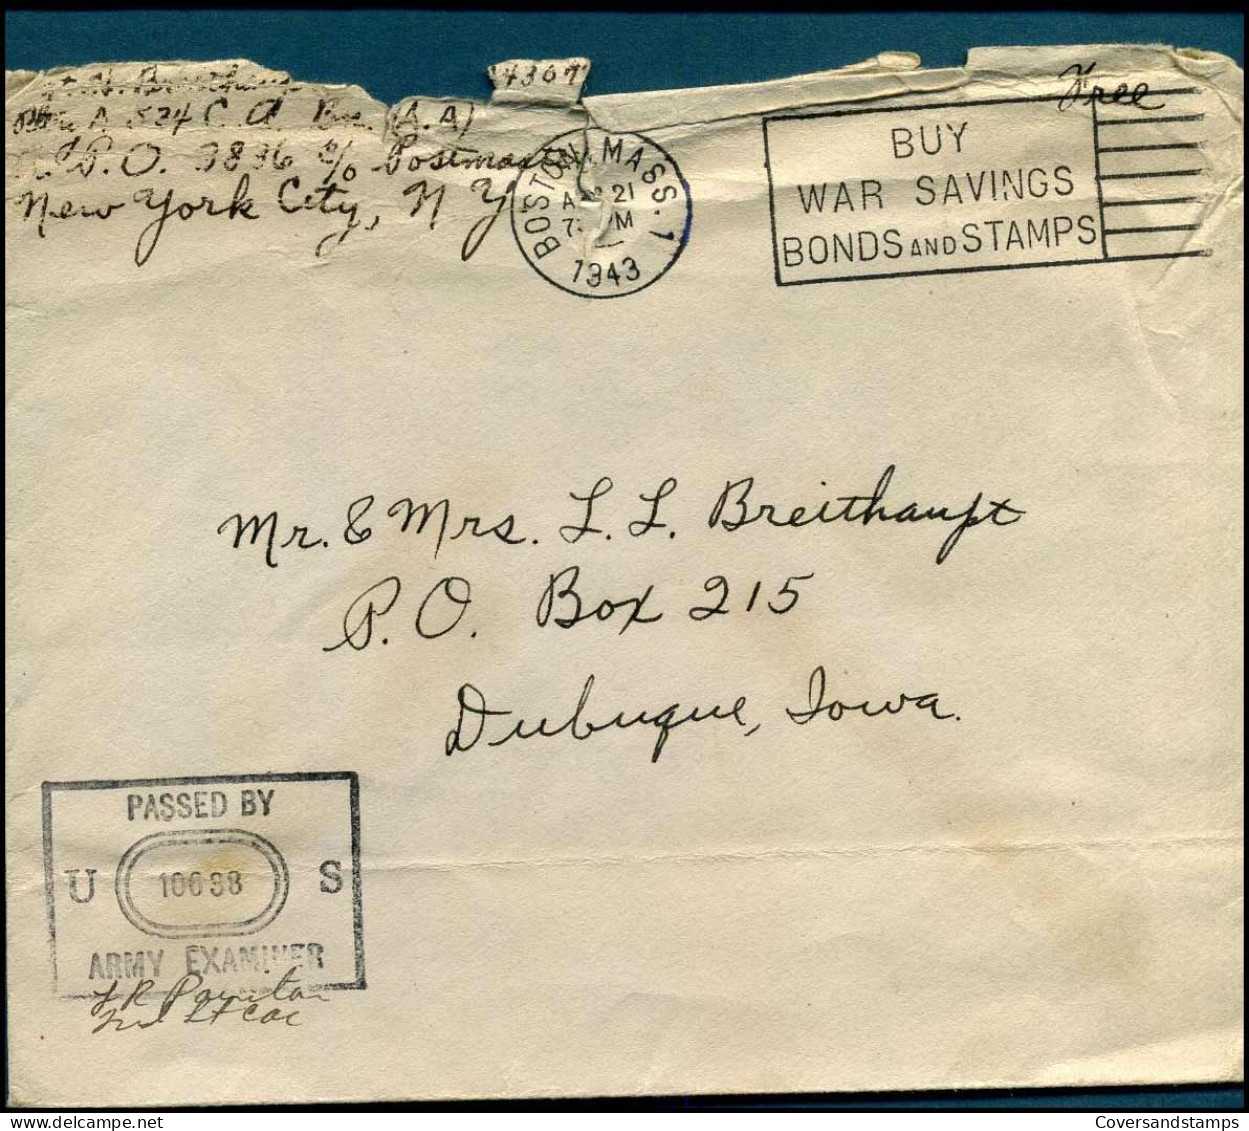 H. Breithaup
14367
Btry A 534 C. A. Bn. (A.A)
A. P.O. 3836 c/o Postmaste
New York City, N Y
Free
BOSTON, MASS. 1
21
7 PM
1943
BUY
WAR SAVINGS
BONDS AND STAMPS
Mr. & Mrs. L. L. Breithaupt
P.O. Box 215
Dubuque, Iowa.
PASSED BY
U 10638 S
ARMY EXAMINER
Lt CAC
Coversandstamps